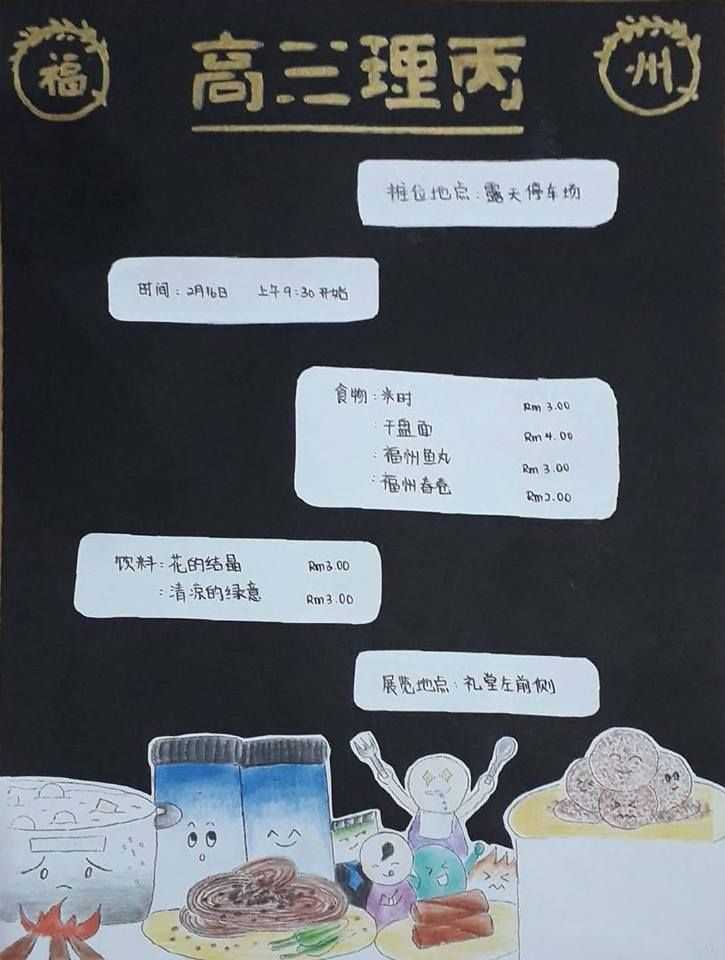 福
高三理丙
州
摊位地点：露天停车场
时间：2月16日 上午9:30开始
食物：米时 Rm 3.00
：干盘面 Rm 4.00
：福州鱼丸 Rm 3.00
：福州春卷 Rm2.00
饮料：花的结晶 Rm3.00
：清凉的绿意 Rm3.00
展览地点：礼堂左前侧